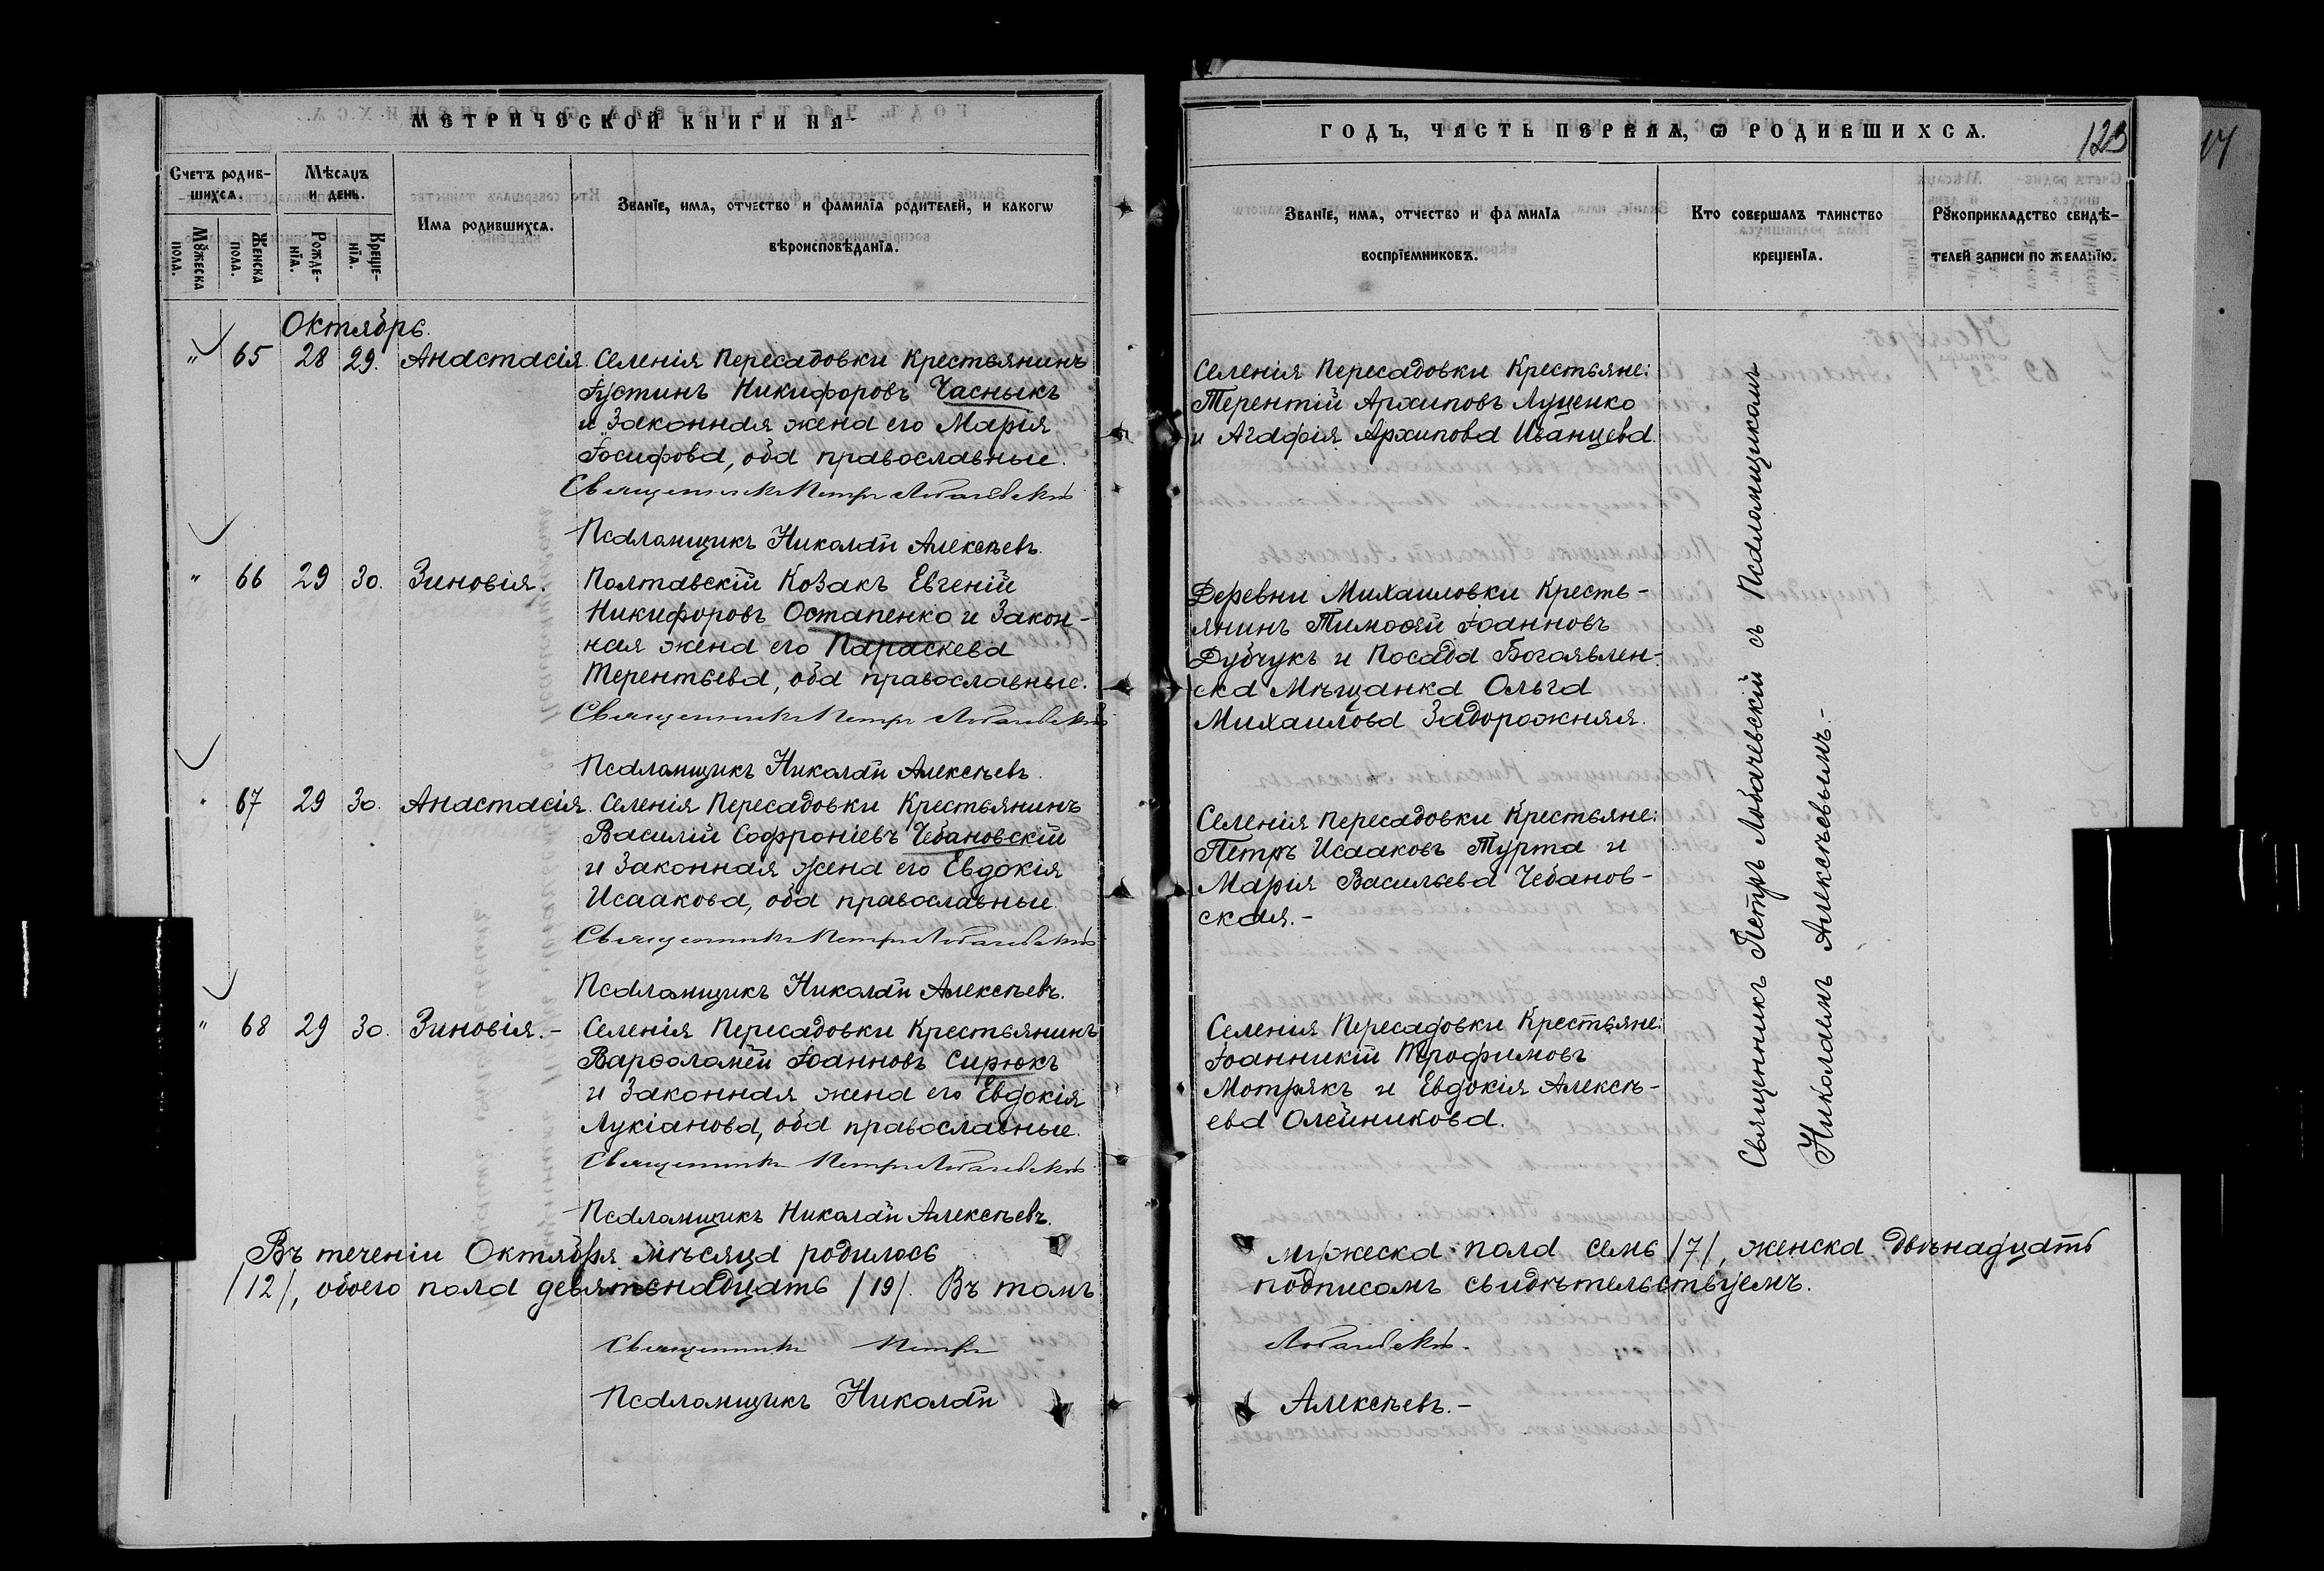 МЕТРИЧЕСКОЙ КНИГИ НА
Счетъ родив-
шихся.
Мѣсяцъ
и день.
Имя родившихся.
Званїе, имя, отчество и фамилїя родителей, и какогѡ
вѣроисповѣданїя.
Мꙋжеска
пола.
Женска
пола.
Рожде-
нїя.
Креще-
нїя.
Октябрь.
" 65 28 29. Анастасія. Селенія Пересадовки Крестьянинъ
Іустинъ Никифоровъ Часныкъ
и Законная жена его Марія
Іосифова, оба православные.
Священникъ Петръ Лобачевскій
Псаломщикъ Николай Алексѣевъ.
" 66 29 30. Зиновія. Полтавскій Козакъ Евгеній
Никифоровъ Остапенко и Закон-
ная жена его Параскева
Терентьева, оба православные.
Священникъ Петръ Лобачевскій
Псаломщикъ Николай Алексѣевъ.
" 67 29 30. Анастасія. Селенія Пересадовки Крестьянинъ
Василій Софроніевъ Чебановскій
и Законная жена его Евдокія
Исаакова, оба православные.
Священникъ Петръ Лобачевскій
Псаломщикъ Николай Алексѣевъ.
" 68 29 30. Зиновія.- Селенія Пересадовки Крестьянинъ
Варѳоломей Іоанновъ Сирюкъ
и Законная жена его Евдокія
Лукіанова, оба православные.
Священникъ Петръ Лобачевскій
Псаломщикъ Николай Алексѣевъ.
Въ теченіи Октября мѣсяца родилось
/12/, обоего пола девятьнадцать /19/. Въ томъ
Священникъ Петръ
Псаломщикъ Николай
ГОДЪ, ЧАСТЬ ПЕРВАЯ, Ѡ РОДИВШИХСЯ.
123
Званїе, имя, отчество и фамилїя
воспрїемниковъ.
Кто совершалъ таинство
крещенїя.
Рꙋкоприкладство свидѣ-
телей записи по желанїю.
Селенія Пересадовки Крестьяне:
Терентій Архиповъ Луценко
и Агафія Архипова Иванцева.
Деревни Михаиловки Кресть-
янинъ Тимоѳей Іоанновъ
Дубчукъ и Посада Богоявлен-
ска Мѣщанка Ольга
Михаилова Задорожняя.
Селенія Пересадовки Крестьяне:
Петръ Исааковъ Турта и
Марія Васильева Чебанов-
ская.-
Селенія Пересадовки Крестьяне:
Іоанникій Трофимовъ
Мотрякъ и Евдокія Алексѣ-
ева Олейникова.
Священникъ Петръ Лобачевскій съ Псаломщикомъ
Николаемъ Алексѣевымъ.-
мужеска пола семь /7/, женска двѣнадцать
подписомъ свидѣтельствуемъ.
Лобачевскій.
Алексѣевъ.-